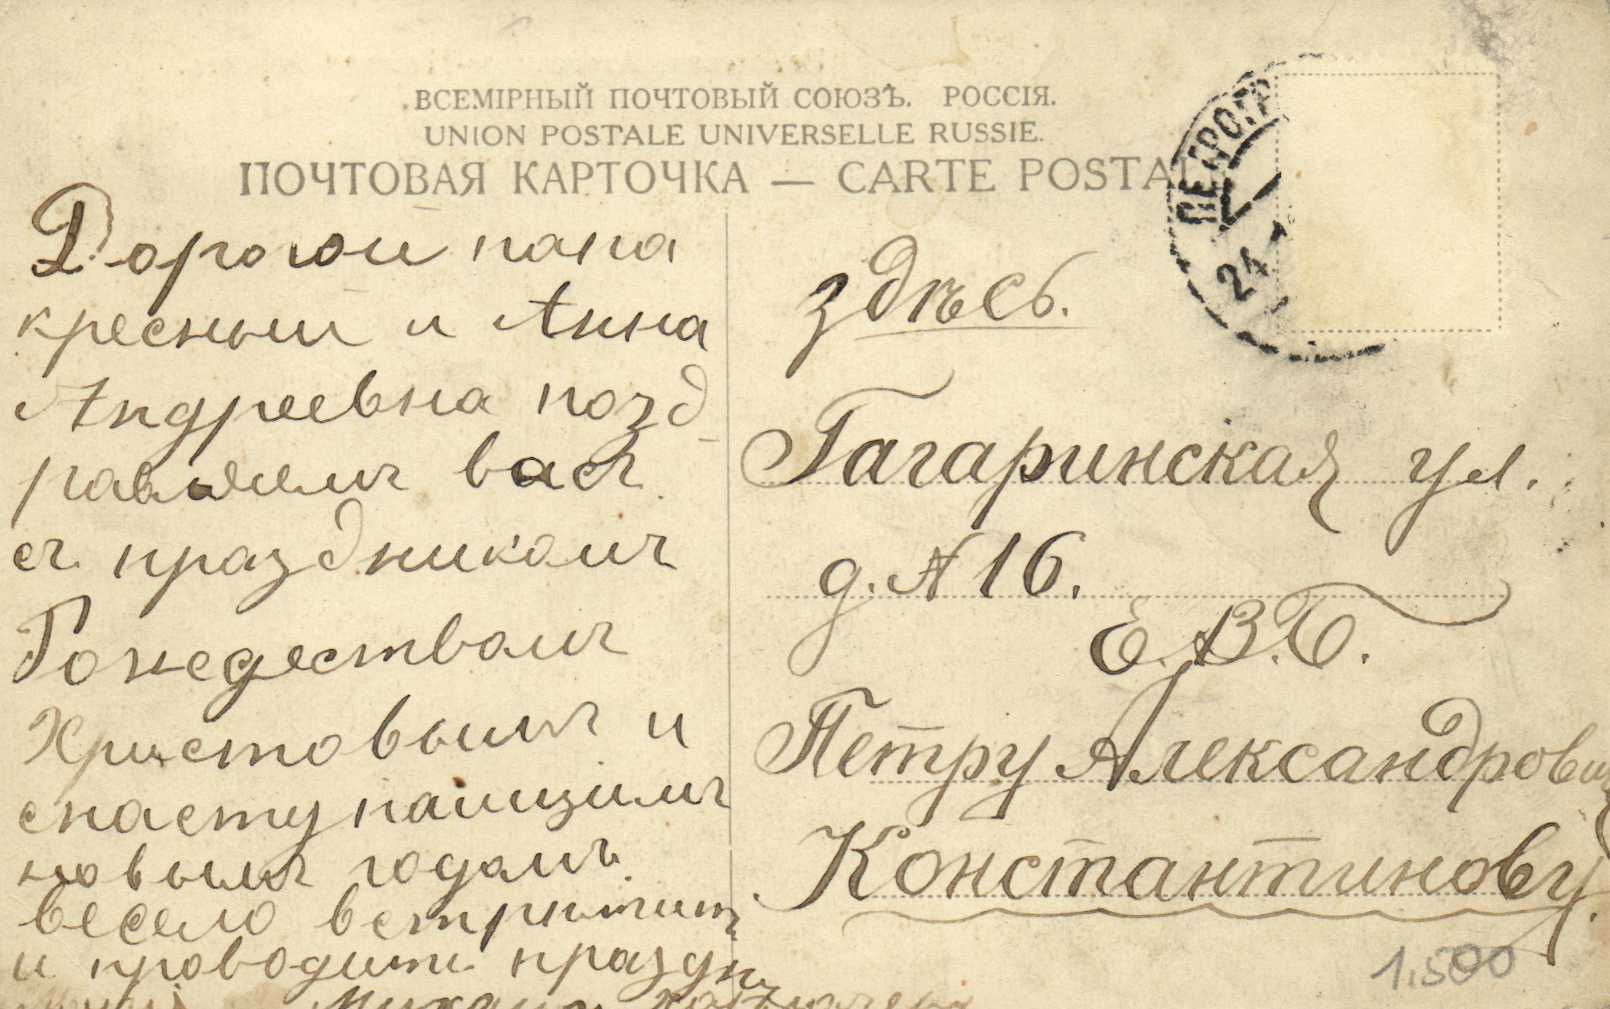 ВСЕМІРНЫЙ ПОЧТОВЫЙ СОЮЗЪ. РОССІЯ.
UNION POSTALE UNIVERSELLE RUSSIE.
ПОЧТОВАЯ КАРТОЧКА — CARTE POSTAL
ПЕТРОГР
24
Дорогой папа
кресный и Анна
Андреевна позд-
равляемъ васъ
съ праздникомъ
Рожедествомъ
Христовымъ и
снаступающимъ
новымъ годомъ.
весело встретить
и проводить праздн
Михаил
здѣсь.
Гагаринская ул.
д. № 16.
Е.В.Б.
Петру Александрович
Константинову.
1.500